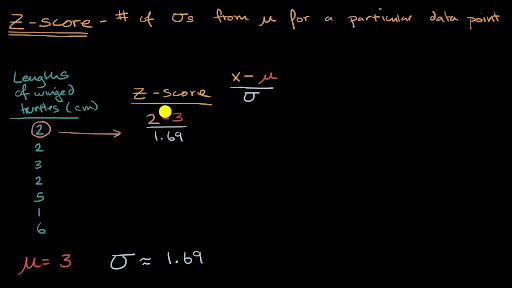 Z-score - # of σs from μ for a particular data point
Lengths
of winged
turtles (cm)
2
2
3
2
5
1
6
Z-score
2-3
1.69
x-μ
σ
μ= 3
σ ≈ 1.69